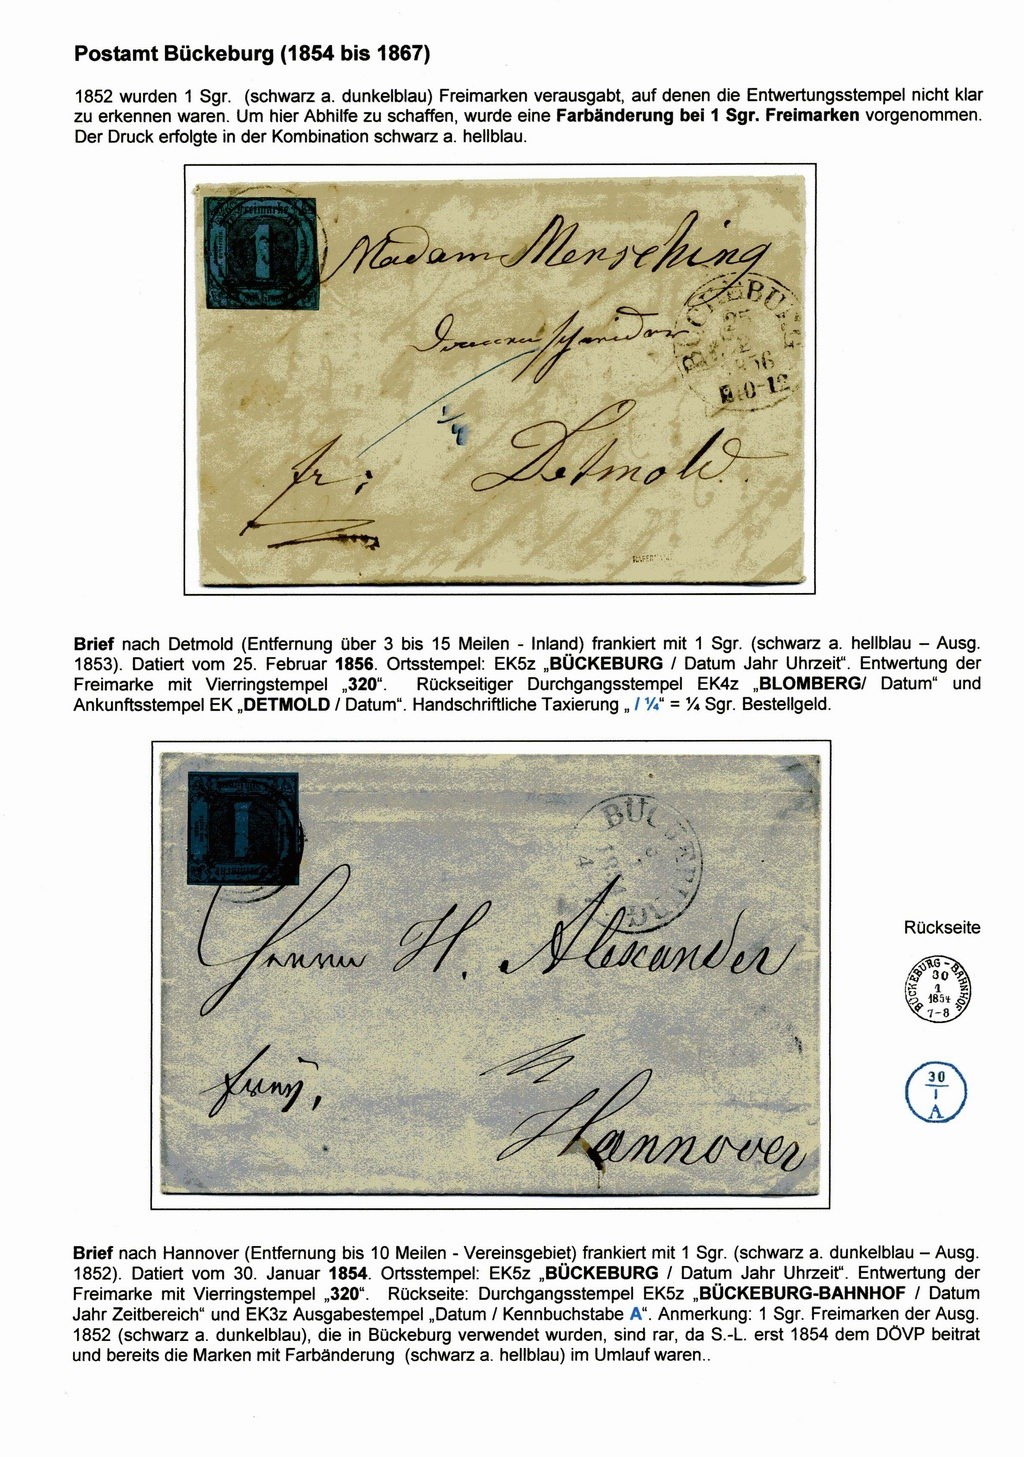 Postamt Bückeburg (1854 bis 1867)
1852 wurden 1 Sgr. (schwarz a. dunkelblau) Freimarken verausgabt, auf denen die Entwertungsstempel nicht klar
zu erkennen waren. Um hier Abhilfe zu schaffen, wurde eine Farbänderung bei 1 Sgr. Freimarken vorgenommen.
Der Druck erfolgte in der Kombination schwarz a. hellblau.
Freimarke
1
Madam Mensching
BÜCKEBURG
25
1856
10-12
1/4
fr:
Detmold.
Brief nach Detmold (Entfernung über 3 bis 15 Meilen - Inland) frankiert mit 1 Sgr. (schwarz a. hellblau – Ausg.
1853). Datiert vom 25. Februar 1856. Ortsstempel: EK5z „BÜCKEBURG / Datum Jahr Uhrzeit“. Entwertung der
Freimarke mit Vierringstempel „320“. Rückseitiger Durchgangsstempel EK4z „BLOMBERG/ Datum“ und
Ankunftsstempel EK „DETMOLD / Datum“. Handschriftliche Taxierung „ / ¼“ = ¼ Sgr. Bestellgeld.
1
Herrn H. Alexander
frey,
Hannover
Rückseite
BÜCKEBURG-BAHNHOF
30
1
1854
7-8
30
I
A
Brief nach Hannover (Entfernung bis 10 Meilen - Vereinsgebiet) frankiert mit 1 Sgr. (schwarz a. dunkelblau – Ausg.
1852). Datiert vom 30. Januar 1854. Ortsstempel: EK5z „BÜCKEBURG / Datum Jahr Uhrzeit“. Entwertung der
Freimarke mit Vierringstempel „320“. Rückseite: Durchgangsstempel EK5z „BÜCKEBURG-BAHNHOF / Datum
Jahr Zeitbereich“ und EK3z Ausgabestempel „Datum / Kennbuchstabe A“. Anmerkung: 1 Sgr. Freimarken der Ausg.
1852 (schwarz a. dunkelblau), die in Bückeburg verwendet wurden, sind rar, da S.-L. erst 1854 dem DÖVP beitrat
und bereits die Marken mit Farbänderung (schwarz a. hellblau) im Umlauf waren..